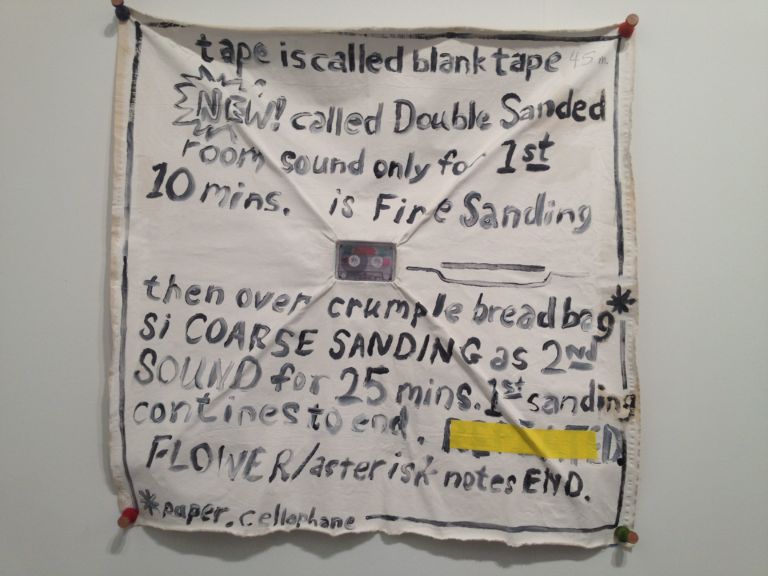 tape is called blank tape 45 m.
NEW! called Double Sanded
room sound only for 1st
10 mins. is Fine Sanding
then over crumple bread bag*
si COARSE SANDING as 2nd
SOUND for 25 mins. 1st sanding
contines to end.
FLOWER/asterisk notes END.
*paper, cellophane